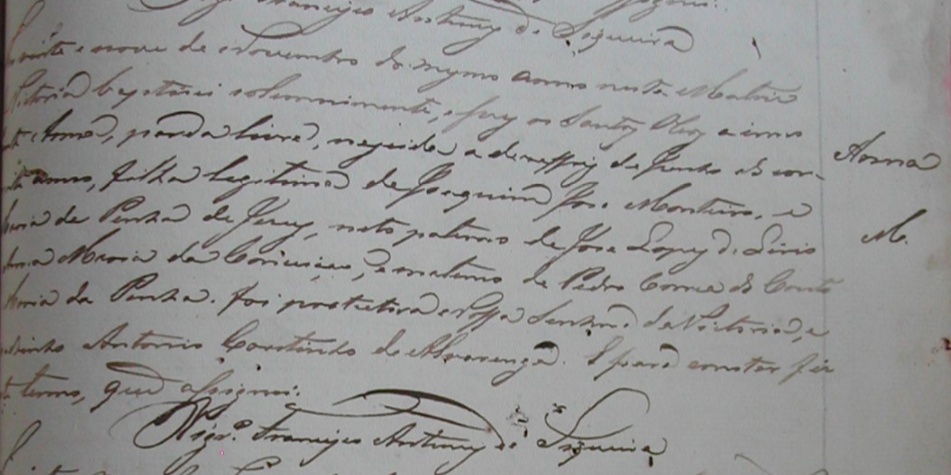 Francisco Antunes de Siqueira
vinte e nove de Novembro do mesmo anno nesta Matriz
Victoria baptisei solemnimente, e puz os Santos Oleos a
Anna, parda livre, nascida a dezesseis de Junho do cor-
anno, filha legitima de Joaquim Jose Monteiro, e
Maria da Penha de Jesus, neta paterna de Jose Lopes de
Maria da Conceição, e materna de Pedro Correa do Couto
Maria da Penha. Foi protectora Nossa Senhora da Victoria, e
Padrinho Antonio Coutinho de Alvarenga. E para constar fiz
termo, que assignei.
Vigr.º Francisco Antunes de Siqueira
Anna
M.